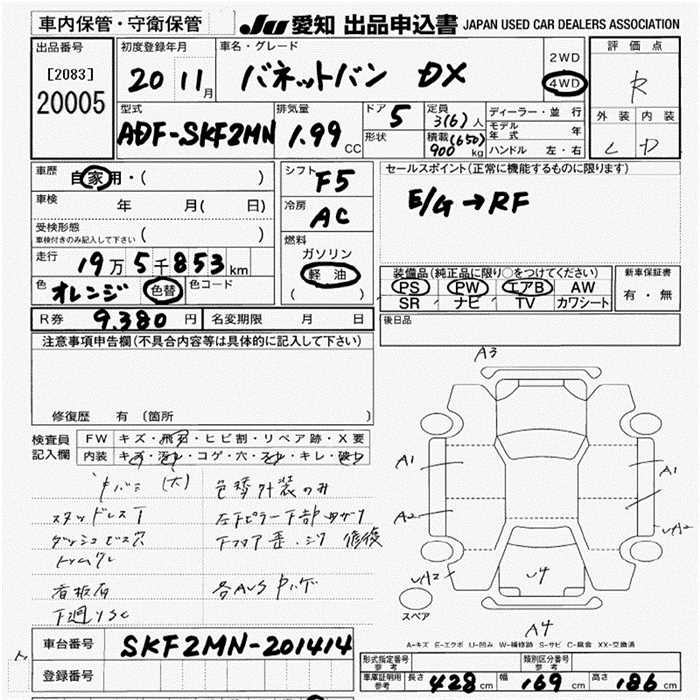 車内保管・守衛保管 JU 愛知 出品申込書 JAPAN USED CAR DEALERS ASSOCIATION
出品番号 初度登録年月 車名・グレード 2WD 評価点
[2083] 20 11月 バネットバン DX 4WD R
20005
型式 排気量 ドア 5 定員 3(6)人 ディーラー・並行 外装 内装
ADF-SKF2MN 1.99 CC 形状 積載 (650) 900 kg モデル年式 年
ハンドル 左・右
車歴 自家用・( ) シフト F5 セールスポイント(正常に機能するものに限ります)
車検 年 月( 日) 冷房 AC E/G→RF
受検形態
車検付きのみ記入して下さい ( ) 燃料
走行 19万5千853km ガソリン
軽油 装備品(純正品に限り○をつけてください) 新車保証書
色 オレンジ 色替 色コード ( ) PS PW エアB AW 有・無
SR ナビ TV カワシート
R券 9.380円 名変期限 月 日 後日品
注意事項申告欄(不具合内容等は具体的に記入して下さい)
A3
修復歴 有 〔箇所 〕
検査員 FW キズ・飛石・ヒビ割・リペア跡・X要
記入欄 内装 キズ・汚れ・コゲ・穴・スレ・キレ・破れ
A1 A1
色替外装のみ
スタッドレス A2
左下ピラー下部
修復
看板
U4
スペア
A4
A-キズ E-エクボ U-凹み W-補修跡 S-サビ C-腐食 XX-交換済
車台番号 SKF2MN-201414
形式指定番号 参考 類別区分番号 参考
登録番号 車庫証明用 参考 長さ 428cm 幅 169cm 高さ 186cm